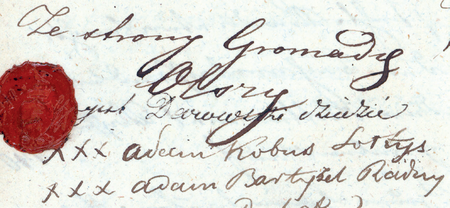 Ze strony Gromady
Olszy
Darowski dziedzic
xxx adam Kobus Sołtys
xxx adam Bartyzel Radny